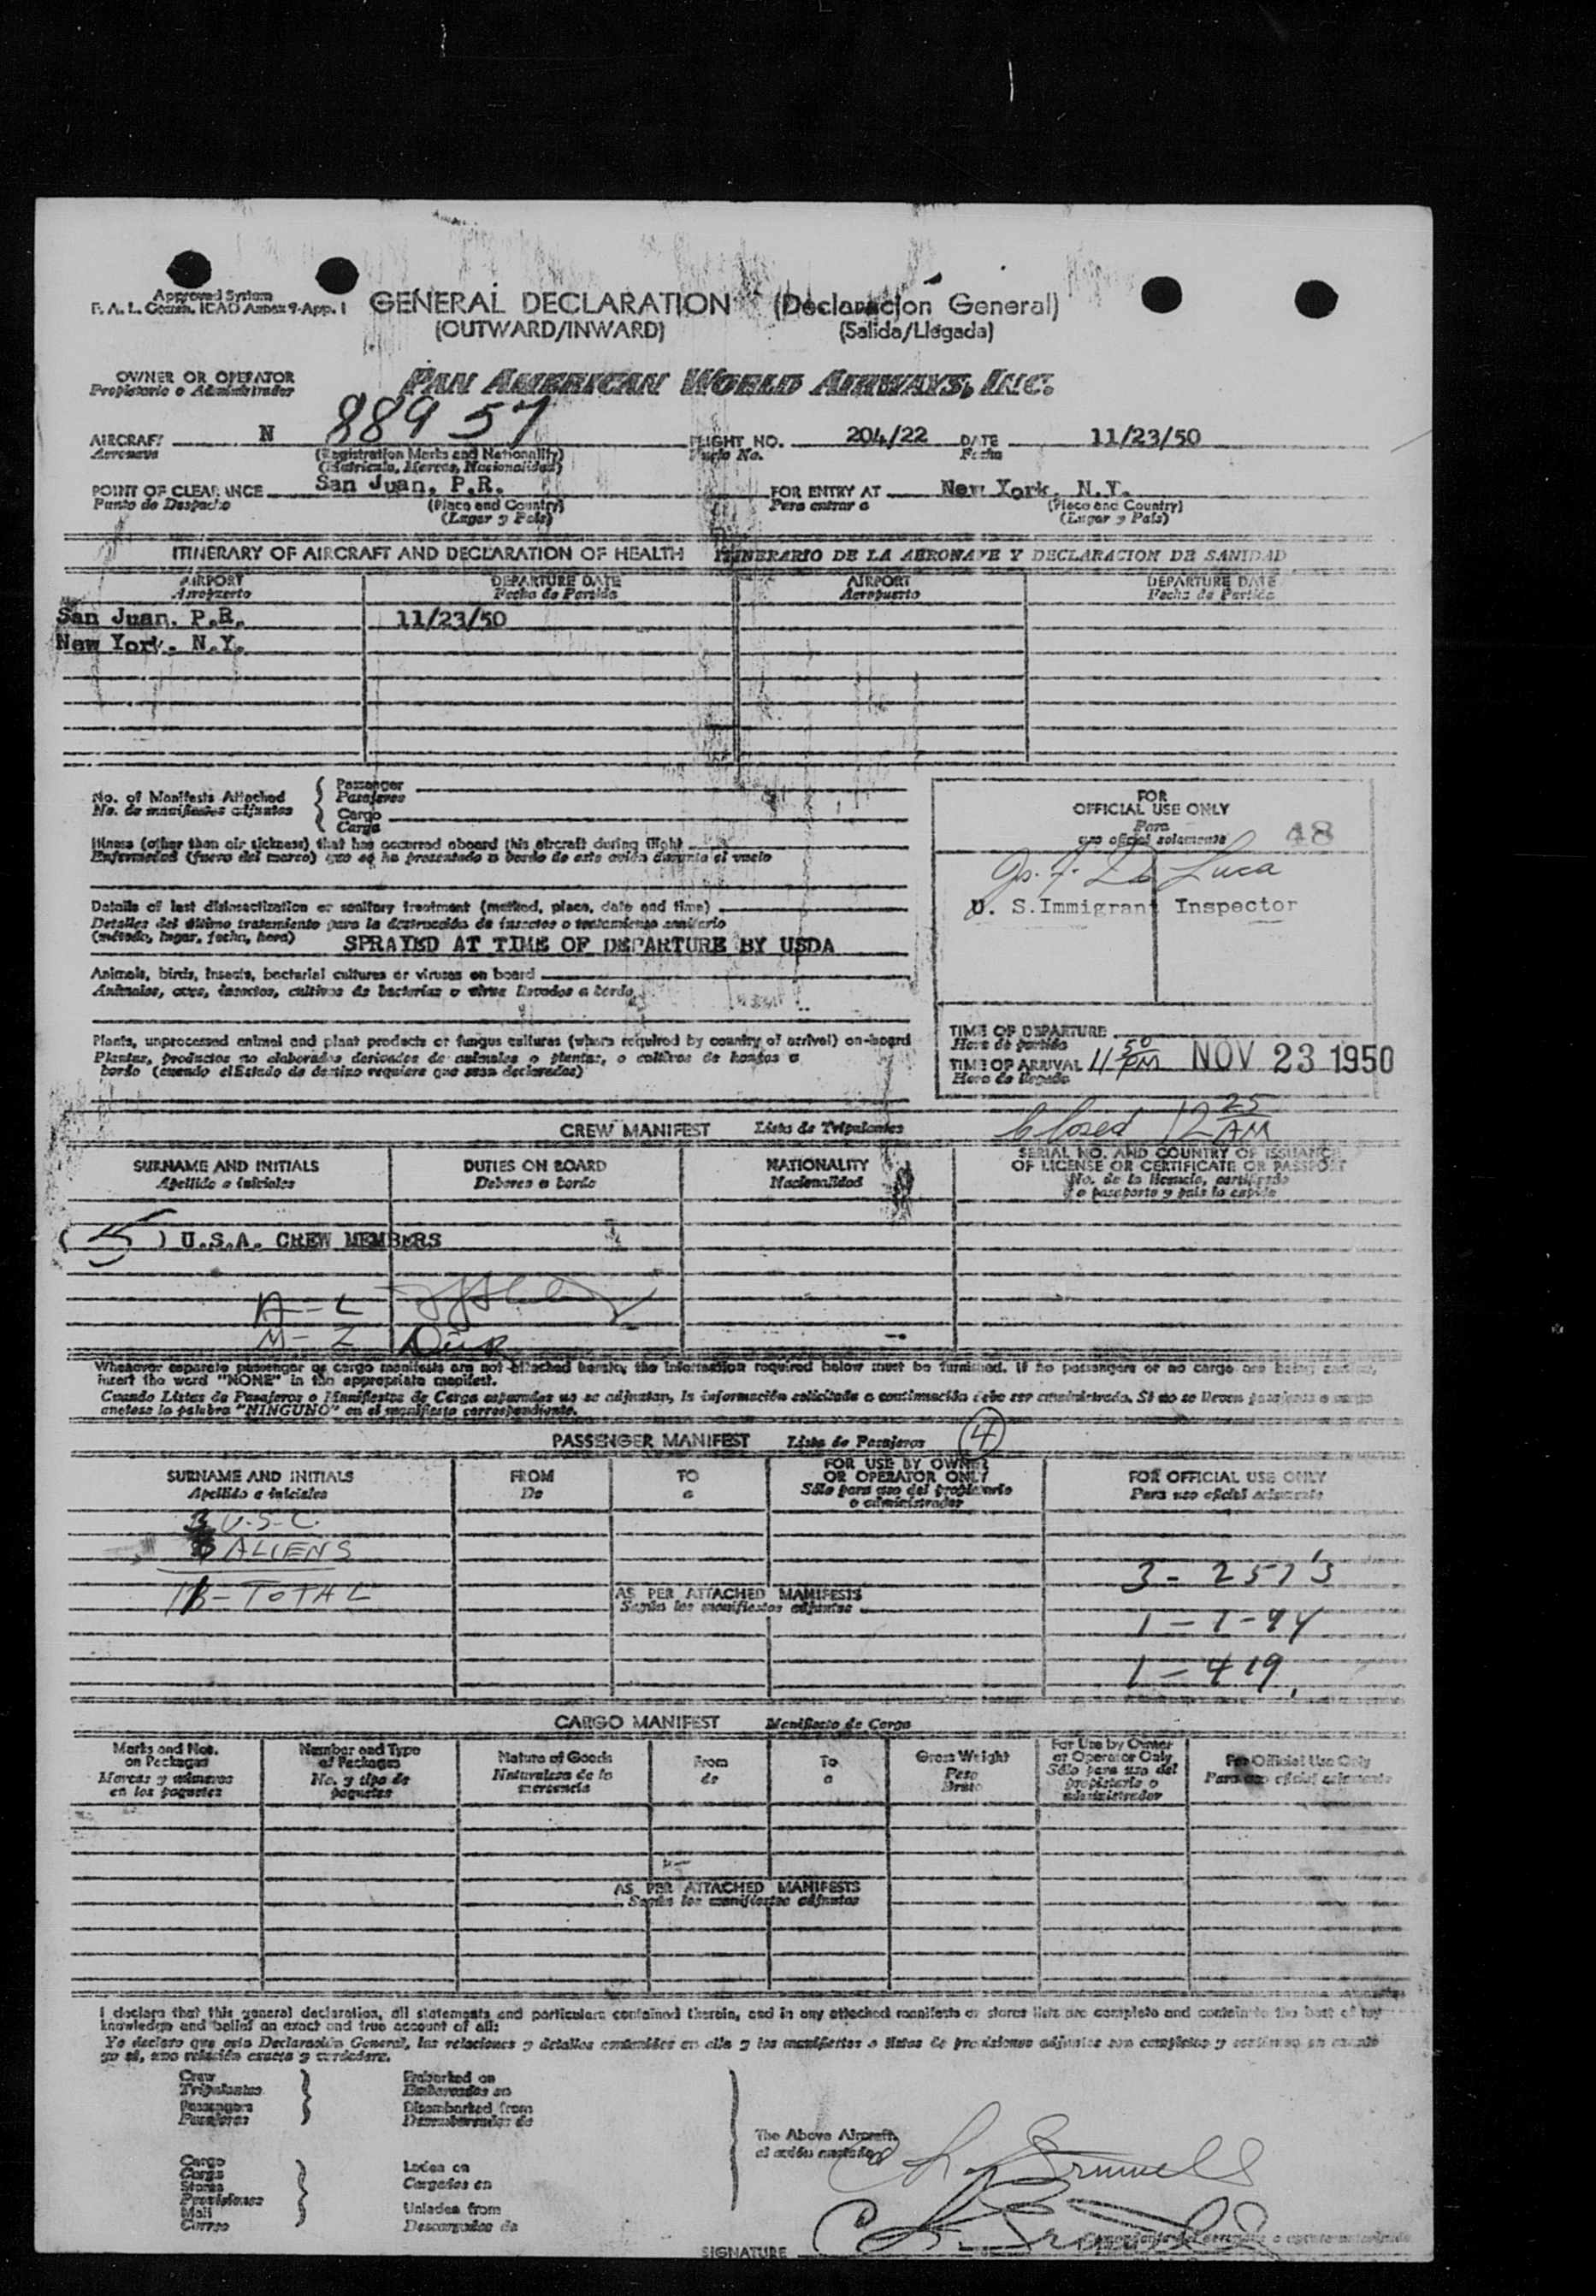 Approved System
F. A. L. Comm. ICAO Annex 9-App. 1
GENERAL DECLARATION (Declaracion General)
(OUTWARD/INWARD) (Salida/Llegada)
OWNER OR OPERATOR
Propietario o Administrador
PAN AMERICAN WORLD AIRWAYS, INC.
AIRCRAFT N 88957 FLIGHT NO. 204/22 DATE 11/23/50
Aeronave (Registration Marks and Nationality) Vuelo No. Fecha
(Matricula, Marcas, Nacionalidad)
POINT OF CLEARANCE San Juan, P.R. FOR ENTRY AT New York, N.Y.
Punto de Despacho (Place and Country) Para entrar a (Place and Country)
(Lugar y Pais) (Lugar y Pais)
ITINERARY OF AIRCRAFT AND DECLARATION OF HEALTH ITINERARIO DE LA AERONAVE Y DECLARACION DE SANIDAD
AIRPORT DEPARTURE DATE AIRPORT DEPARTURE DATE
Aeropuerto Fecha de Partida Aeropuerto Fecha de Partida
San Juan, P.R. 11/23/50
New York, N.Y.
No. of Manifests Attached
No. de manifiestos adjuntos
Passenger
Pasajeros
Cargo
Carga
Illness (other than air sickness) that has occurred aboard this aircraft during flight
Enfermedad (fuera del mareo) que se ha presentado a bordo de este avión durante el vuelo
Details of last disinsectization or sanitary treatment (method, place, date and time)
Detalles del último tratamiento para la destrucción de insectos o tratamiento sanitario
(método, lugar, fecha, hora) SPRAYED AT TIME OF DEPARTURE BY USDA
Animals, birds, insects, bacterial cultures or viruses on board
Animales, aves, insectos, cultivos de bacterias o virus llevados a bordo
Plants, unprocessed animal and plant products or fungus cultures (where required by country of arrival) on-board
Plantas, productos no elaborados derivados de animales o plantas, o cultivos de hongos a
bordo (cuando el Estado de destino requiere que sean declarados)
FOR
OFFICIAL USE ONLY
Para
uso oficial solamente
48
De Luca
U. S. Immigrant Inspector
TIME OF DEPARTURE
Hora de partida
TIME OF ARRIVAL 11 50 PM NOV 23 1950
Hora de llegada
Closed 12 25 AM
CREW MANIFEST Lista de Tripulantes
SURNAME AND INITIALS DUTIES ON BOARD NATIONALITY SERIAL NO. AND COUNTRY OF ISSUANCE
OF LICENSE OR CERTIFICATE OR PASSPORT
Apellido e iniciales Deberes a bordo Nacionalidad No. de la licencia, certificado
o pasaporte y pais lo expide
( 5 ) U.S.A. CREW MEMBERS
A - L
M - Z
Whenever separate passenger or cargo manifests are not attached hereto, the information required below must be furnished. If no passengers or no cargo are being
insert the word "NONE" in the appropriate manifest.
Cuando Listas de Pasajeros o Manifiestos de Carga separados no se adjuntan, la información solicitada a continuación debe ser suministrada. Si no se llevan pasajeros o carga
anotese la palabra "NINGUNO" en el manifiesto correspondiente.
PASSENGER MANIFEST Lista de Pasajeros 4
SURNAME AND INITIALS FROM TO FOR USE BY OWNER
OR OPERATOR ONLY FOR OFFICIAL USE ONLY
Apellido e iniciales De a Sólo para uso del propietario
o administrador Para uso oficial solamente
U.S.C.
ALIENS
TOTAL
AS PER ATTACHED MANIFESTS
Según los manifiestos adjuntos
3 - 257's
1 - 1-94
1 - 419
CARGO MANIFEST Manifiesto de Carga
Marks and Nos.
on Packages
Marcas y números
en los paquetes
Number and Type
of Packages
No. y tipo de
paquetes
Nature of Goods
Naturaleza de la
mercancia
From
de
To
a
Gross Weight
Peso
Bruto
For Use by Owner
or Operator Only
Sólo para uso del
propietario o
administrador
For Official Use Only
Para uso oficial solamente
AS PER ATTACHED MANIFESTS
Según los manifiestos adjuntos
I declare that this general declaration, all statements and particulars contained therein, and in any attached manifests or stores lists are complete and contain to the best of my
knowledge and belief an exact and true account of all:
Yo declaro que esta Declaración General, las relaciones y detalles contenidos en ella y los manifiestos o listas de provisiones adjuntos son completos y contienen en cuanto
yo sé, una relación exacta y verdadera.
Crew
Tripulantes
Passengers
Pasajeros
Embarked on
Embarcados en
Disembarked from
Desembarcados de
Cargo
Carga
Stores
Provisiones
Mail
Correo
Laden on
Cargados en
Unladen from
Descargados de
The Above Aircraft
el avión anotado
SIGNATURE